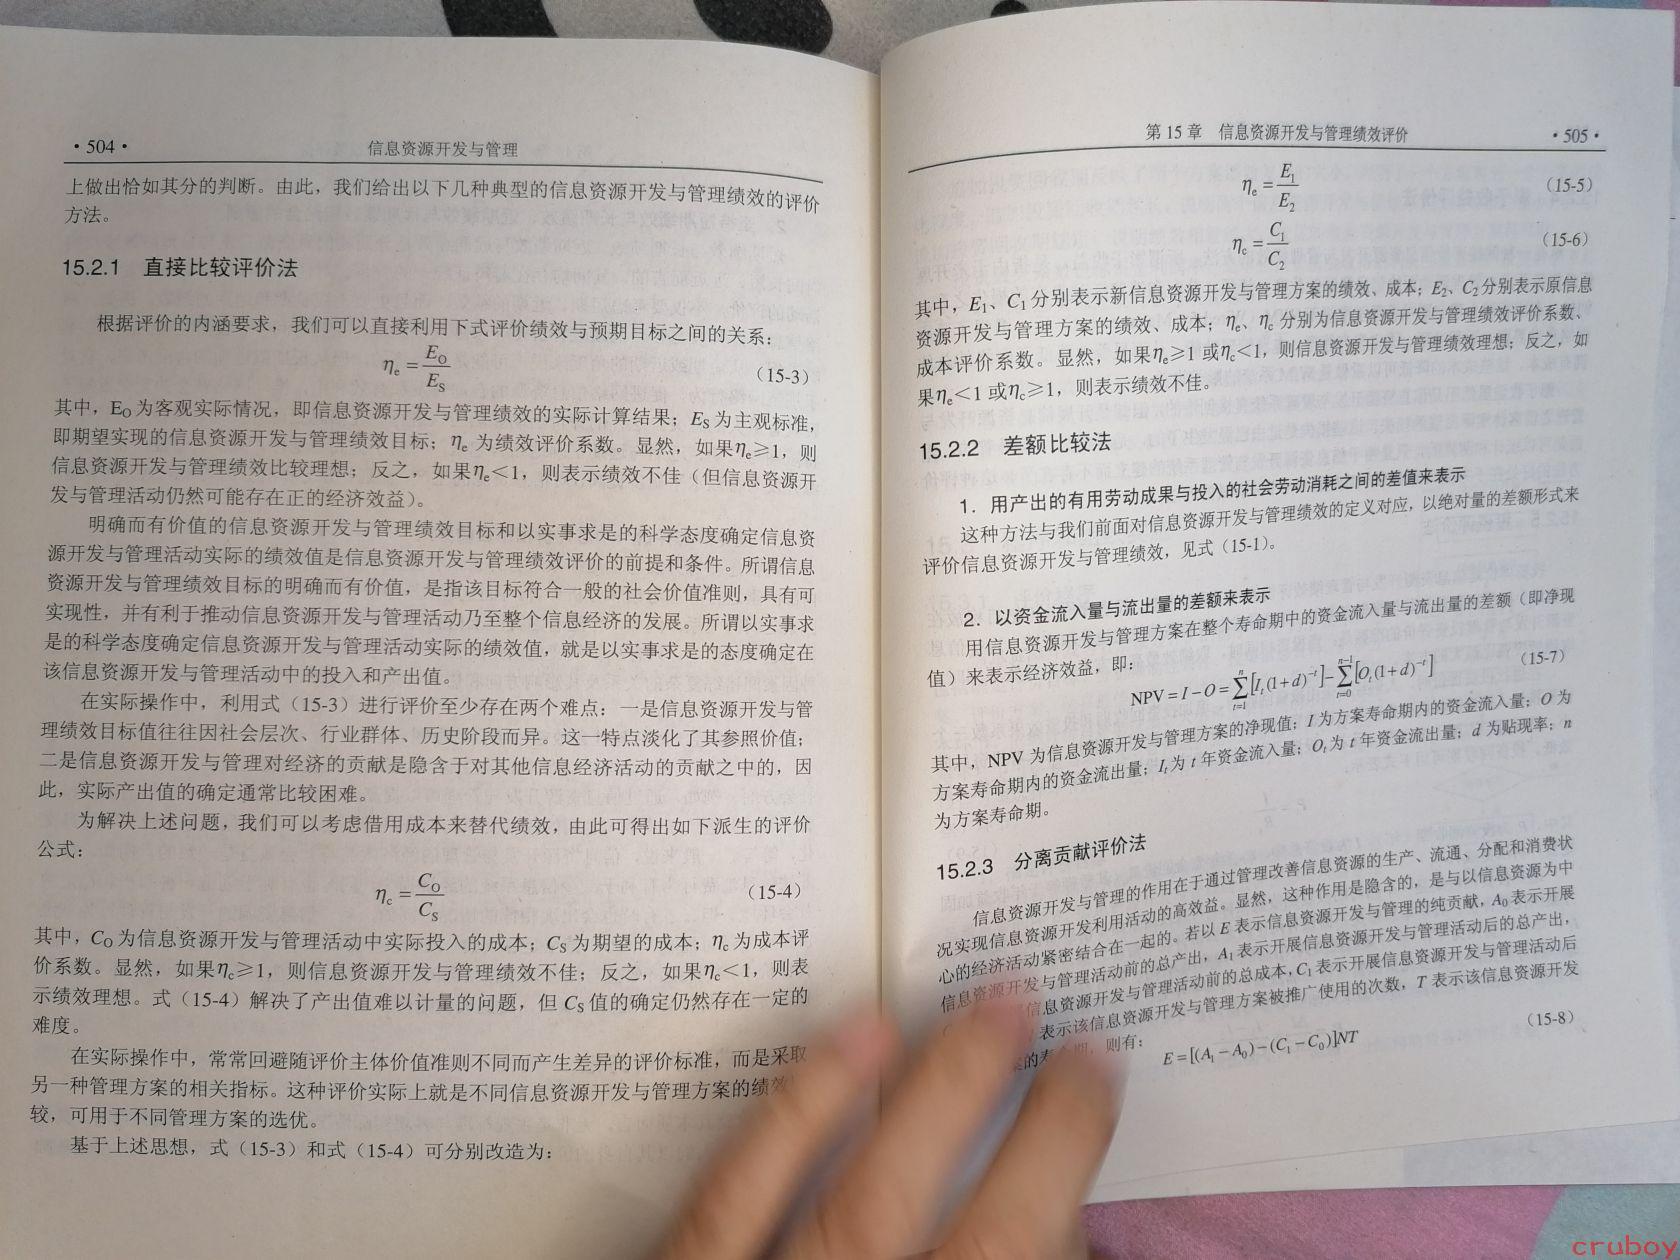 ·504·
信息资源开发与管理
上做出恰如其分的判断。由此，我们给出以下几种典型的信息资源开发与管理绩效的评价
方法。
15.2.1 直接比较评价法
根据评价的内涵要求，我们可以直接利用下式评价绩效与预期目标之间的关系：
ηe = EO/ES （15-3）
其中，EO 为客观实际情况，即信息资源开发与管理绩效的实际计算结果；ES 为主观标准，
即期望实现的信息资源开发与管理绩效目标；ηe 为绩效评价系数。显然，如果ηe≥1，则
信息资源开发与管理绩效比较理想；反之，如果ηe<1，则表示绩效不佳（但信息资源开
发与管理活动仍然可能存在正的经济效益）。
明确而有价值的信息资源开发与管理绩效目标和以实事求是的科学态度确定信息资
源开发与管理活动实际的绩效值是信息资源开发与管理绩效评价的前提和条件。所谓信息
资源开发与管理绩效目标的明确而有价值，是指该目标符合一般的社会价值准则，具有可
实现性，并有利于推动信息资源开发与管理活动乃至整个信息经济的发展。所谓以实事求
是的科学态度确定信息资源开发与管理活动实际的绩效值，就是以实事求是的态度确定在
该信息资源开发与管理活动中的投入和产出值。
在实际操作中，利用式（15-3）进行评价至少存在两个难点：一是信息资源开发与管
理绩效目标值往往因社会层次、行业群体、历史阶段而异。这一特点淡化了其参照价值；
二是信息资源开发与管理对经济的贡献是隐含于对其他信息经济活动的贡献之中的，因
此，实际产出值的确定通常比较困难。
为解决上述问题，我们可以考虑借用成本来替代绩效，由此可得出如下派生的评价
公式：
ηc = CO/CS （15-4）
其中，CO 为信息资源开发与管理活动中实际投入的成本；CS 为期望的成本；ηc 为成本评
价系数。显然，如果ηc≥1，则信息资源开发与管理绩效不佳；反之，如果ηc<1，则表
示绩效理想。式（15-4）解决了产出值难以计量的问题，但 CS 值的确定仍然存在一定的
难度。
在实际操作中，常常回避随评价主体价值准则不同而产生差异的评价标准，而是采取
另一种管理方案的相关指标。这种评价实际上就是不同信息资源开发与管理方案的绩效
较，可用于不同管理方案的选优。
基于上述思想，式（15-3）和式（15-4）可分别改造为：
第 15 章 信息资源开发与管理绩效评价
·505·
ηe = E1/E2 （15-5）
ηc = C1/C2 （15-6）
其中，E1、C1 分别表示新信息资源开发与管理方案的绩效、成本；E2、C2分别表示原信息
资源开发与管理方案的绩效、成本；ηe、ηc 分别为信息资源开发与管理绩效评价系数、
成本评价系数。显然，如果ηe≥1 或ηc<1，则信息资源开发与管理绩效理想；反之，如
果ηe<1 或ηc≥1，则表示绩效不佳。
15.2.2 差额比较法
1．用产出的有用劳动成果与投入的社会劳动消耗之间的差值来表示
这种方法与我们前面对信息资源开发与管理绩效的定义对应，以绝对量的差额形式来
评价信息资源开发与管理绩效，见式（15-1）。
2．以资金流入量与流出量的差额来表示
用信息资源开发与管理方案在整个寿命期中的资金流入量与流出量的差额（即净现
值）来表示经济效益，即：
NPV = I − O = ∑(t=1..n)[It(1+d)^−t] − ∑(t=0..n−1)[Ot(1+d)^−t] （15-7）
其中，NPV 为信息资源开发与管理方案的净现值；I 为方案寿命期内的资金流入量；O 为
方案寿命期内的资金流出量；It为 t 年资金流入量；Ot为 t 年资金流出量；d 为贴现率；n
为方案寿命期。
15.2.3 分离贡献评价法
信息资源开发与管理的作用在于通过管理改善信息资源的生产、流通、分配和消费状
况实现信息资源开发利用活动的高效益。显然，这种作用是隐含的，是与以信息资源为中
心的经济活动紧密结合在一起的。若以 E 表示信息资源开发与管理的纯贡献，A0 表示开展
信息资源开发与管理活动前的总产出，A1 表示开展信息资源开发与管理活动后的总产出，
信息资源开发与管理活动前的总成本，C1 表示开展信息资源开发与管理活动后
表示该信息资源开发与管理方案被推广使用的次数，T 表示该信息资源开发
案的寿命期，则有：
E = [(A1 − A0) − (C1 − C0)]NT （15-8）
cruboy